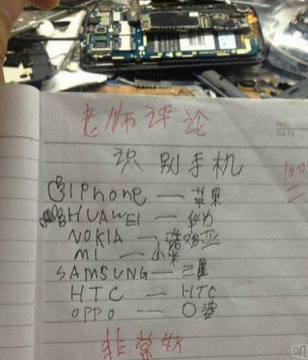 老师评论
NO.
DATE
识别手机
100
iPhone — 苹果
HUAWEI — 华为
NOKIA — 诺基亚
MI — 小米
SAMSUNG — 三星
HTC — HTC
OPPO — O婆
非常好